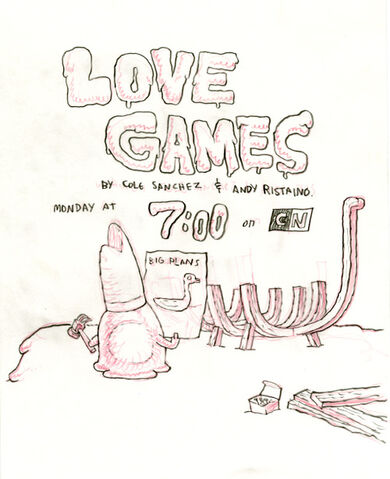 LOVE
GAMES
BY COLE SANCHEZ & ANDY RISTAINO
MONDAY AT 7:00 on CN
BIG PLANS